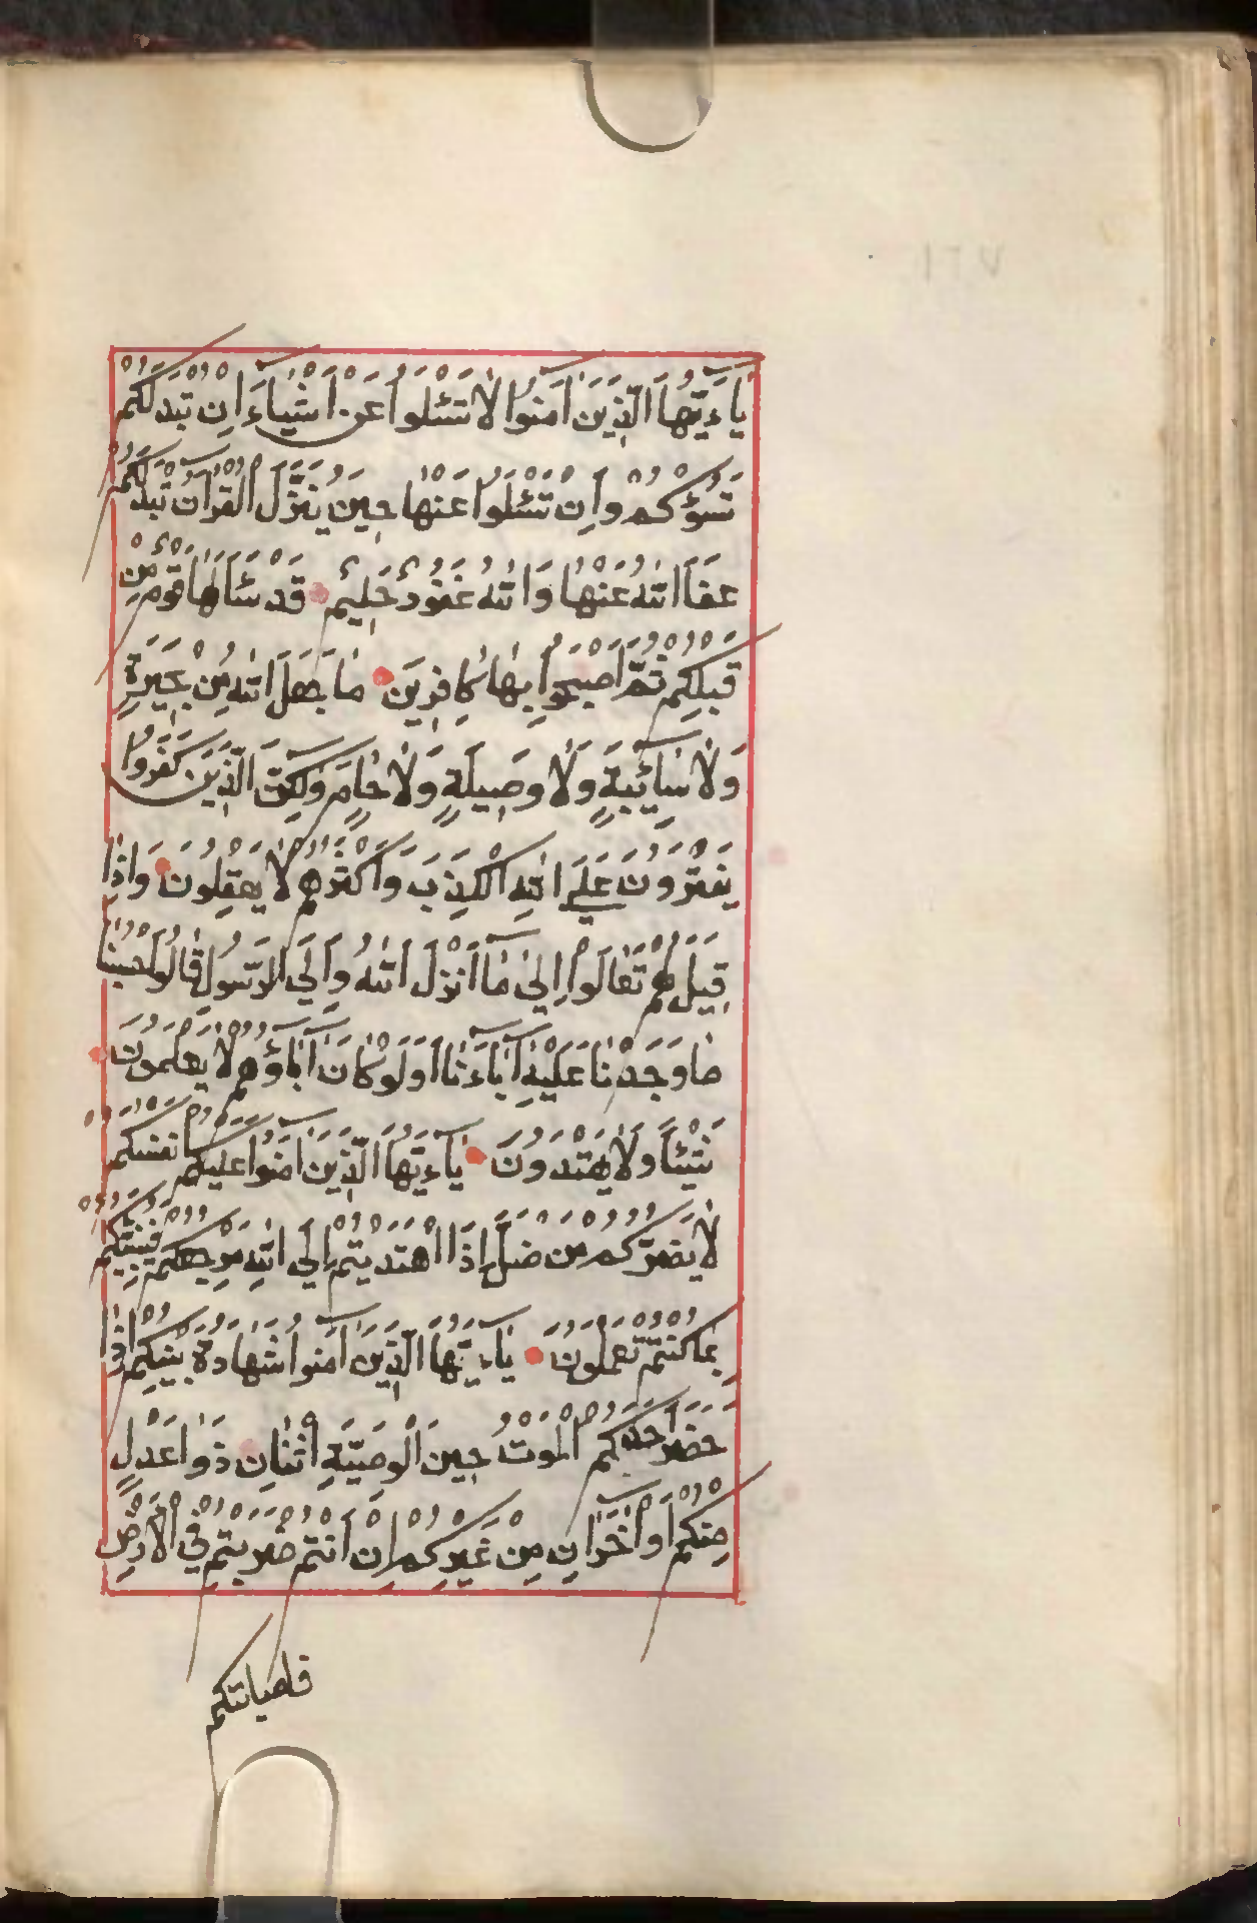 يَاءَيُّهَا الَّذِينَ اٰمَنُوا لَا تَسْئَلُوا عَنْ اَشْيَاءَ اِنْ تُبْدَلَكُمْ
تَسُؤْكُمْ وَاِنْ تَسْئَلُوا عَنْهَا حِينَ يُنَزَّلُ الْقُرْاٰنُ تُبْدَلَكُمْ
عَفَا اللّٰهُ عَنْهَا وَاللّٰهُ غَفُورٌ حَلِيمٌ قَدْ سَئَالَهَا قَوْمٌ مِنْ
قَبْلِكُمْ ثُمَّ اَصْبَحُوا بِهَا كَافِرِينَ مَا جَعَلَ اللّٰهُ مِنْ بَحِيرَةٍ
وَلَا سَائِبَةٍ وَلَا وَصِيلَةٍ وَلَا حَامٍ وَلٰكِنَّ الَّذِينَ كَفَرُوا
يَفْتَرُونَ عَلَى اللّٰهِ الْكَذِبَ وَاَكْثَرُهُمْ لَا يَعْقِلُونَ وَاِذَا
قِيلَ لَهُمْ تَعَالَوْا اِلٰى مَا اَنْزَلَ اللّٰهُ وَاِلَى الرَّسُولِ قَالُوا حَسْبُنَا
مَا وَجَدْنَا عَلَيْهِ اٰبَاءَنَا اَوَلَوْ كَانَ اٰبَاؤُهُمْ لَا يَعْلَمُونَ
شَيْئًا وَلَا يَهْتَدُونَ يَاءَيُّهَا الَّذِينَ اٰمَنُوا عَلَيْكُمْ اَنْفُسَكُمْ
لَا يَضُرُّكُمْ مَنْ ضَلَّ اِذَا اهْتَدَيْتُمْ اِلَى اللّٰهِ مَرْجِعُكُمْ فَيُنَبِّئُكُمْ
بِمَا كُنْتُمْ تَعْمَلُونَ يَاءَيُّهَا الَّذِينَ اٰمَنُوا شَهَادَةُ بَيْنِكُمْ اِذَا
حَضَرَ اَحَدَكُمُ الْمَوْتُ حِينَ الْوَصِيَّةِ اثْنَانِ ذَوَا عَدْلٍ
مِنْكُمْ اَوْ اٰخَرَانِ مِنْ غَيْرِكُمْ اِنْ اَنْتُمْ ضَرَبْتُمْ فِي الْاَرْضِ
فاصابتكم